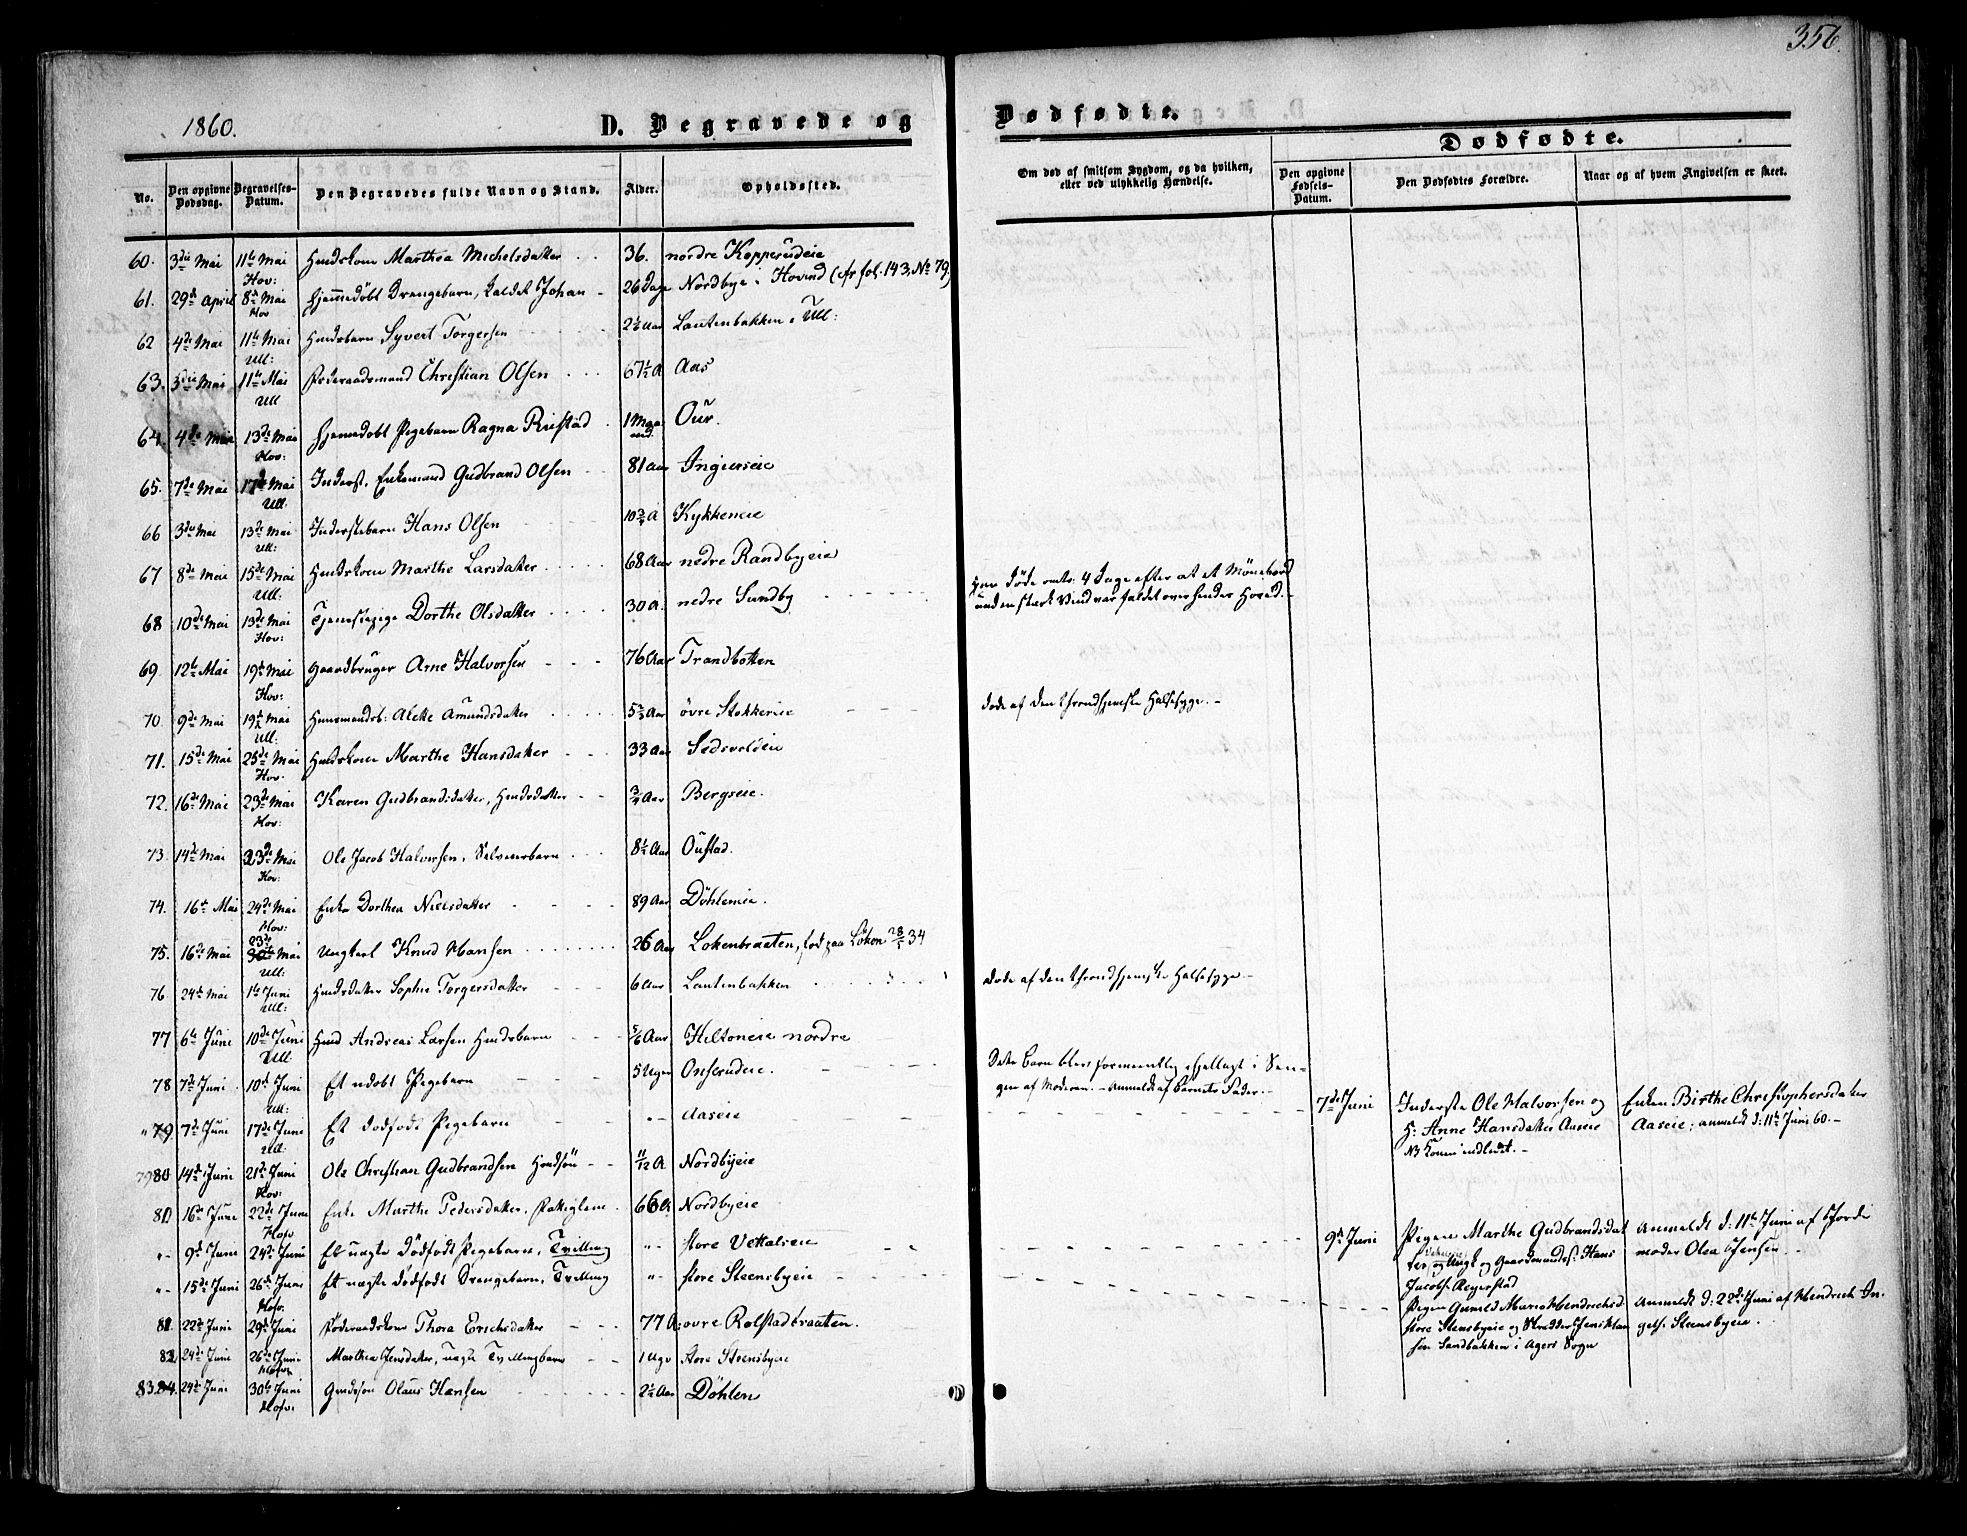 356.
1860. D. Begravede og Dødfødte.
Dødfødte.
No. Den opgivne Dødsdag. Begravelses-Datum. Den Begravedes fulde Navn og Stand. Alder. Opholdssted. Om død af smitsom Sygdom, og da hvilken, eller ved ulykkelig Hændelse. Den opgivne Fødsels-Datum. Den Dødfødtes Forældre. Naar og af hvem Angivelsen er skeet.
60. 3die Mai 11te Mai Hov: Huuskone Marthea Michelsdatter 36. nordre Kopperudeie
61. 29de April 8de Mai Hov Hjemmedøbt Drengebarn, kaldet Johan 26 Dage Nordbye i Hovind (cfr fol. 143, No 79)
62 4de Mai 11te Mai Ull: Huusbarn Syvert Torgersen 2½ Aar Lautenbakken i Ull:
63. 3die Mai 11te Mai Ull Føderaadsmand Christian Olsen 67½ A Aas
64. 4de Mai 13de Mai Hov: Hjemmedøbt Pigebarn Ragna Rustad 1 Maaned. Our.
65. 7de Mai 17de Mai Ull. Inderst, Enkemand Gudbrand Olsen 81 Aar Ingierseie
66 3die Mai 13de Mai Ull: Inderstebarn Hans Olsen 10¾ A Kykkeneie
67 8de Mai 15de Mai Ull: Huuskone Marthe Larsdatter 68 Aar nedre Randbyeie
68 10de Mai 13de Mai Hov: Tjenestepige Dorthe Olsdatter 30 A. nedre Sundby Hun døde omtr: 4 Dage efter at et Mönebord
under stærk Vind var faldet over hendes Hoved.
69 12te Mai 19de Mai Hov: Gaardbruger Arne Halvorsen 76 Aar Trandbotten
70 9de Mai 19de Mai Ull: Huusmandsb: Aleke Amundsdatter 5⅔ Aar övre Stokkereie døde af den throndhjemske Halssyge.
71. 15de Mai 25de Mai Hov. Huuskone Marthe Hansdatter 33 Aar
72. 16de Mai 23de Mai Hov: Karen Gudbrandsdatter, Huusdatter ¾ Aar Bergseie.
73. 14de Mai 23de Mai Hov: Ole Jacob Halvorsen, Selveierbarn 8½ Aar Oustad.
74. 16de Mai 24de Mai Hov: Enke Dorthea Nielsdatter 89 Aar Döhleneie.
75. 16de Mai 23de 30te Mai Ull: Ungkarl Knud Hansen 26 Aar Lökenbraaten, fød paa Löken 28/1 34
76 24de Mai 1te Juni Ull: Huusdatter Sophie Torgersdatter 6 Aar Lautenbakken døde af den throndhjemske Halssyge
77 6te Juni 10de Juni Ull Huus Andreas Larsen Huusbarn 5/6 Aar Hiltoneie nordre
78 7de Juni 10de Juni Ull: Et udøbt Pigebarn 5 Uger Onserudeie. Dette Barn blev formeentlig ihjellagt i Sen-
gen af Moderen. Anmeldt af Barnets Fader.
" 79 7de Juni 17de Juni Ull. Et dødfødt Pigebarn " Aaseie 7de Juni Inderste Ole Halvorsen og
H: Anne Hansdatter Aaseie
NB Konen indledet. Enken Birthe Christophersdatter
Aaseie; anmeldt d: 11te Juni 60.
79 80 14de Juni 21de Juni Hov: Ole Christian Gudbrandsen Huussön 11/12 A Nordbyeie
80 16de Juni 22de Juni Hov Enke Marthe Pedersdatter, Fattiglem 66 A. Nordbyeie
" 9de Juni 24de Juni Et uægte Dödfödt Pigebarn, Tvilling " store Vettalseie 9de Juni Pigen Marthe Gudbrandsdat
ter og Ungk og Gaardmandss: Hans
Jacobs: Reyerstad Anmeldt d: 11te Juni af Jorde
moder Olea Jensen.
" 15de Juni 26de Juni Hov. Et uægte dødfødt Drengebarn, Tvilling " store Steensbyeie Pigen Gunild Marie Hendriksd.
store Steensbyeie og Skrædder Jens
Sandbakken i Agers Sogn Anmeldt d: 22de Juni af Hendrich In-
gels: Steensbyeie.
81 22de Juni 29de Juni Föderaadskone Thora Erichsdatter 77 A: övre Rolstadbraaten.
82 24de Juni 26de Juni Hov Marthea Jensdatter, uægte Tvillingbarn 1 Uge store Steensbyeie
83. 84. 24de Juni 30te Juni Hov: Gaardssøn Olaus Hansen 2½ Aar Döhlen